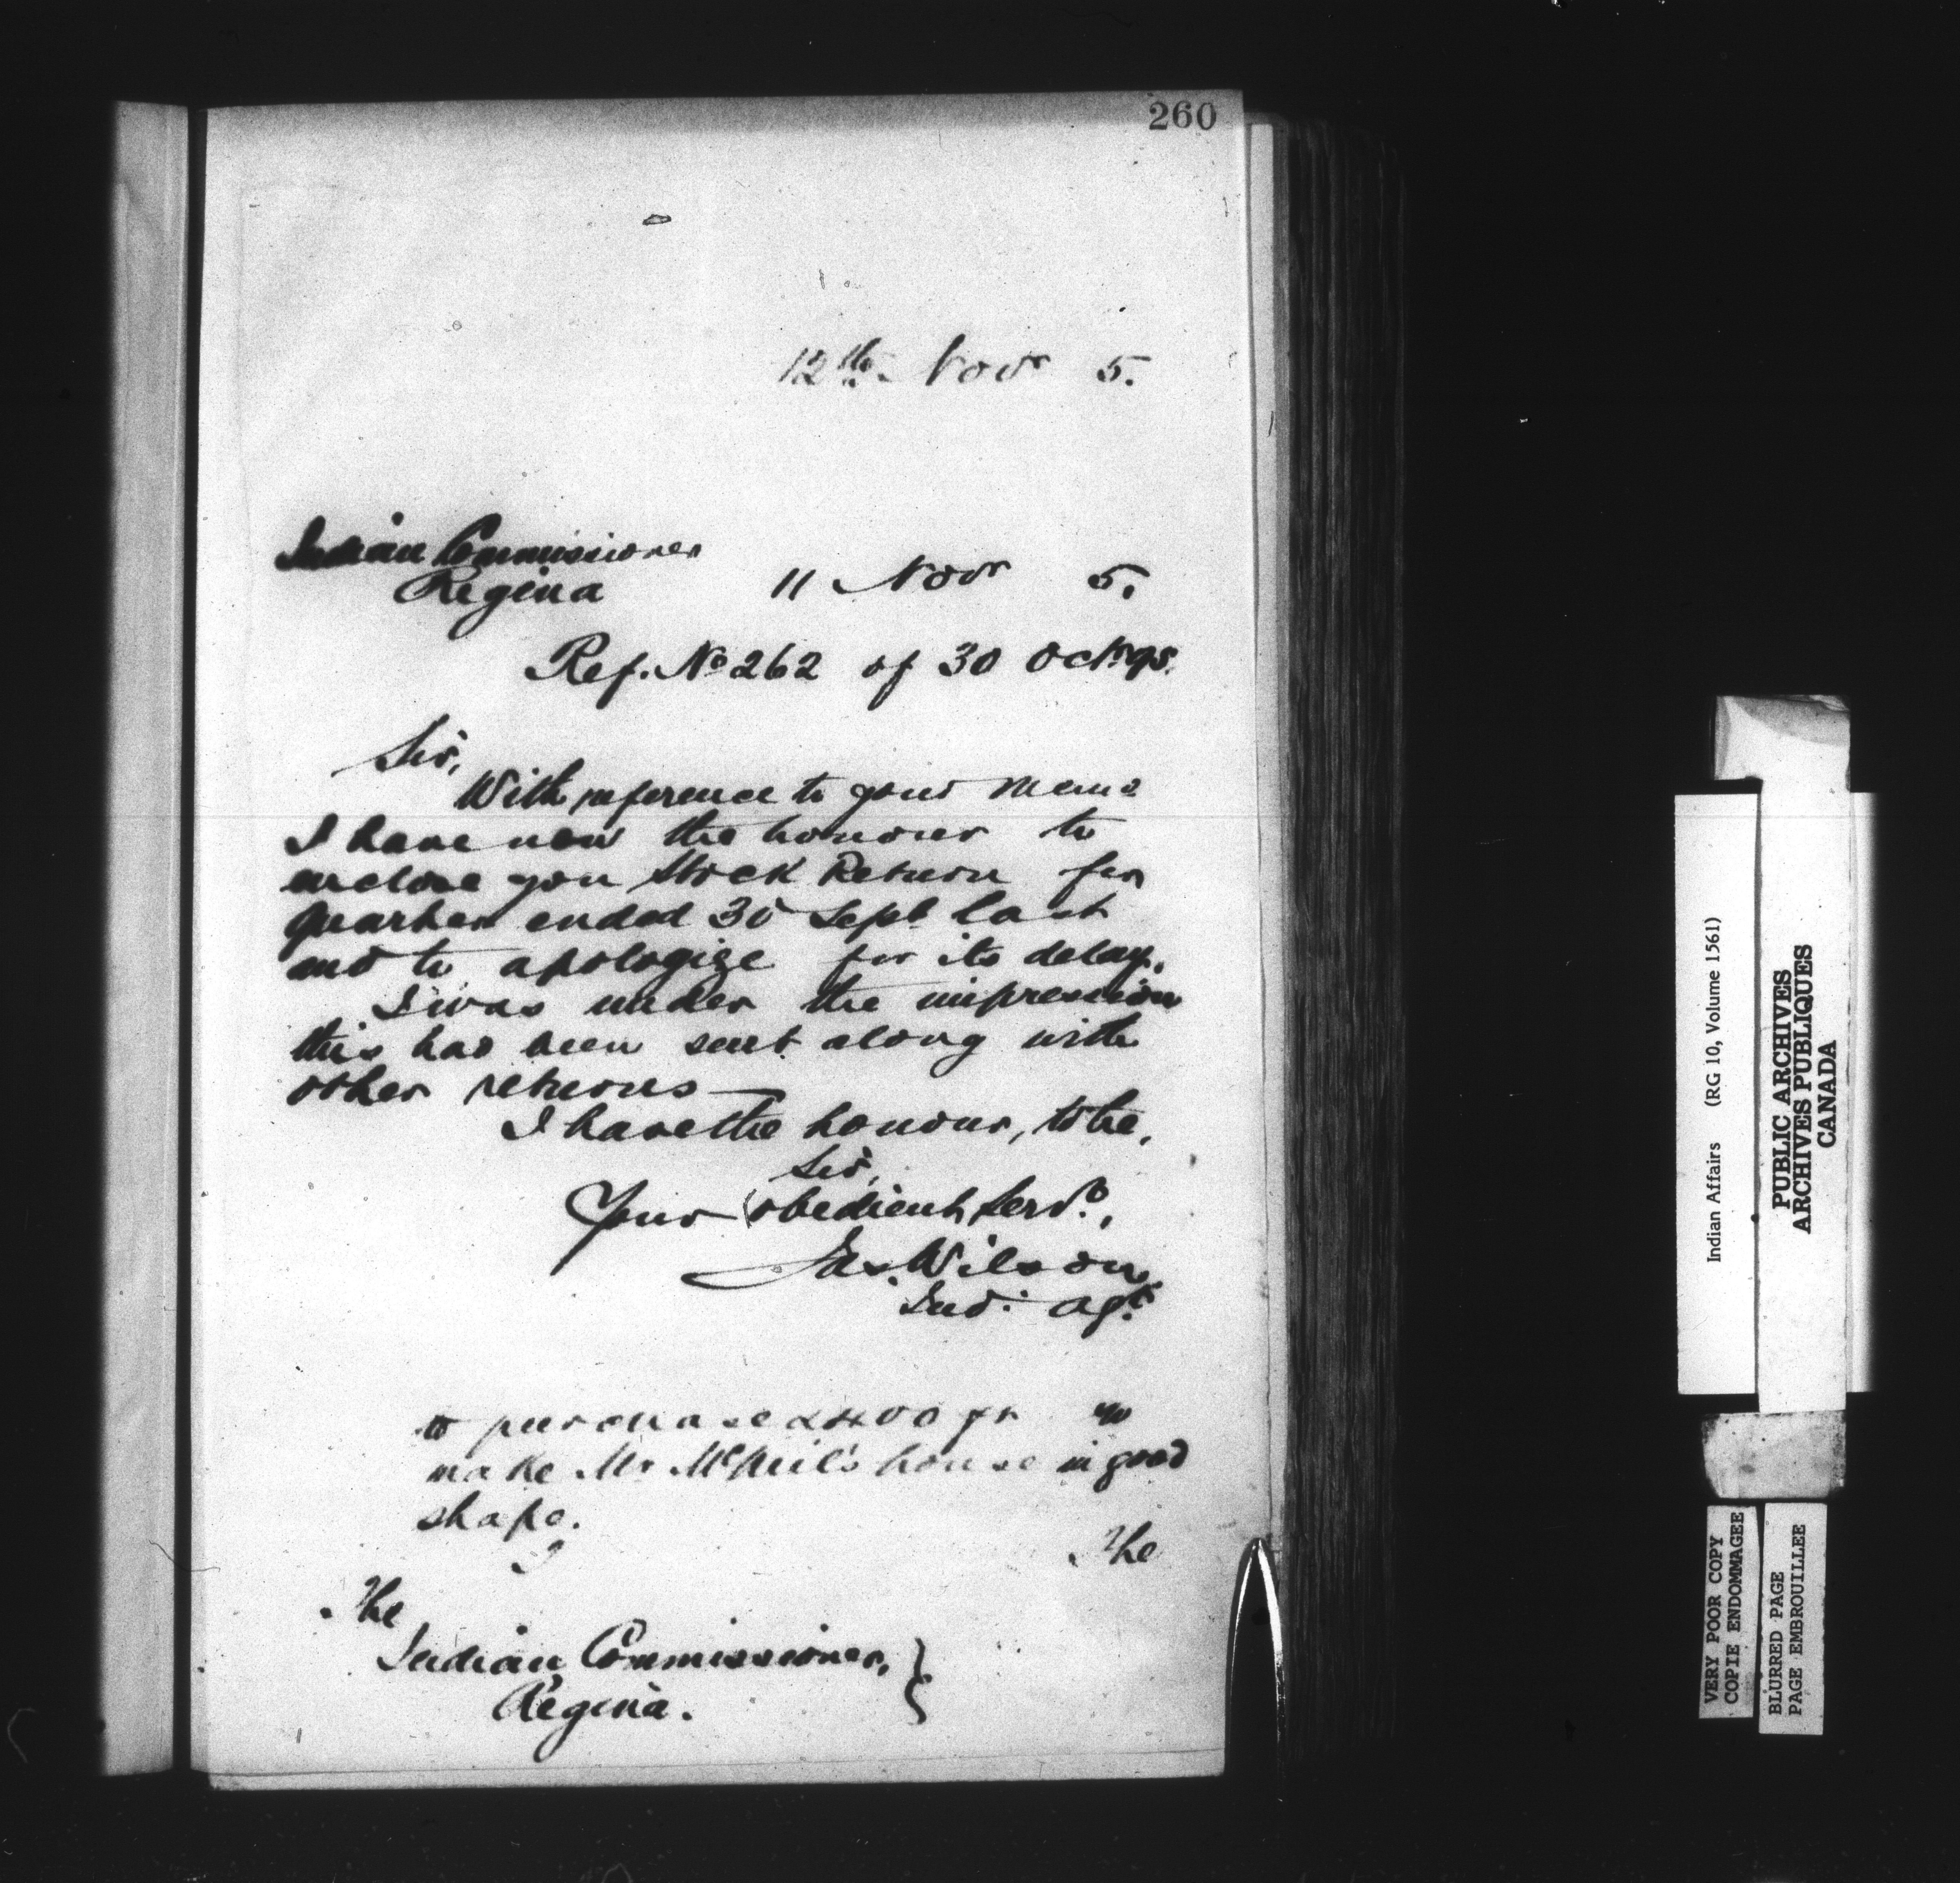 260
12th Novr 5.
Indian Commissioner
Regina 11 Novr 5.
Ref. No 262 of 30 Oct. 95.
Sir,
With reference to your memo
I have now the honour to
enclose you Stock Return for
quarter ended 30 Sept. last
and to apologize for its delay.
I was under the impression
this had been sent along with
other returns —
I have the honour, to be,
Sir,
Your obedient Servt.,
Jas. Wilson
Ind. Agt.
to purchase 2400 ft to
make Mr McNeil's house in good
shape.
I The
The
Indian Commissioner,
Regina.
Indian Affairs (RG 10, Volume 1561)
PUBLIC ARCHIVES
ARCHIVES PUBLIQUES
CANADA
VERY POOR COPY
COPIE ENDOMMAGEE
BLURRED PAGE
PAGE EMBROUILLEE